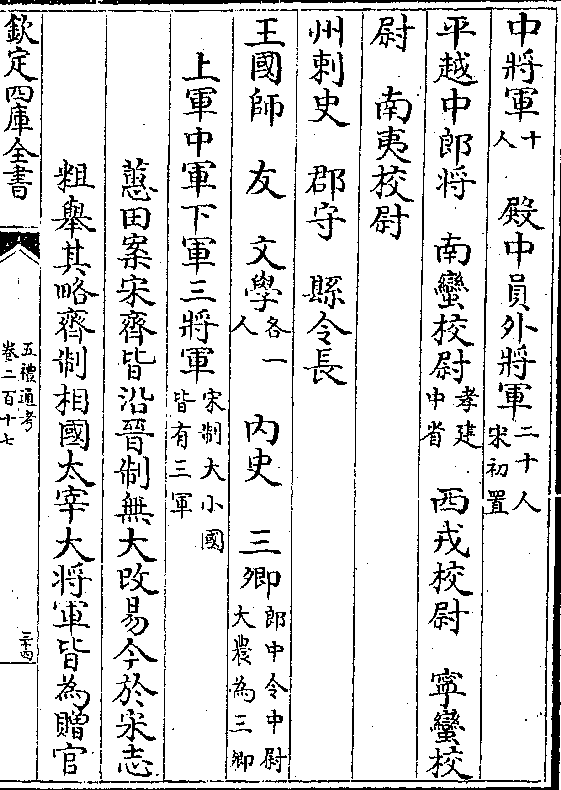 中將軍十人　殿中員外將軍二十人宋初置
平越中郎将　南蠻校尉孝建中省　西戎校尉　寜蠻校
尉　南夷校尉
州刺史　郡守　縣令長
王國師　友　文學各一人　内史　三卿郎中令中尉大農為三卿
上軍中軍下軍三將軍宋制大小國皆有三軍
蕙田案宋齊皆沿晉制無大改易今於宋志
粗舉其略齊制相國太宰大将軍皆為贈官
欽定四庫全書
五禮通考
卷二百十七
三十四